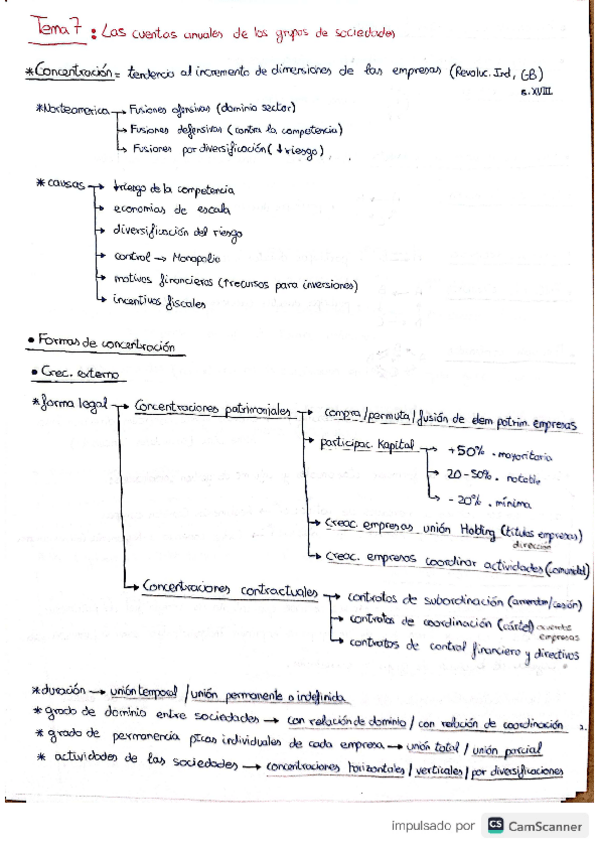 Tema 7 : Las cuentas anuales de los grupos de sociedades
*Concentración = tendencia al incremento de dimensiones de las empresas (Revoluc. Ind, GB)
s. XVIII
*Norteamerica → Fusiones ofensivas (dominio sector)
→ Fusiones defensivas (contra la competencia)
→ Fusiones por diversificación (↓riesgo)
* causas → ↓riesgo de la competencia
→ economías de escala
→ diversificación del riesgo
→ control → Monopolio
→ motivos financieros (↑recursos para inversiones)
→ incentivos fiscales
• Formas de concentración
• Crec. externo
*forma legal → Concentraciones patrimoniales → compra/permuta/fusión de elem patrim. empresas
→ participac. Kapital → +50% . mayoritaria
→ 20-50% . notable
→ -20% . mínima
→ Creac. empresas unión Holding (títulos empresas)
dirección
→ Creac. empresas coordinar actividades (comunidad)
→ Concentraciones contractuales → contratos de subordinación (arrendam/cesión)
→ contratos de coordinación (cártel)
empresas
→ contratos de control financiero y directivos
*duración → unión temporal / unión permanente o indefinida
* grado de dominio entre sociedades → con relación de dominio / con relación de coordinación
* grado de permanencia pticas individuales de cada empresa → unión total / unión parcial
* actividades de las sociedades → concentraciones horizontales / verticales / por diversificaciones
impulsado por CS CamScanner